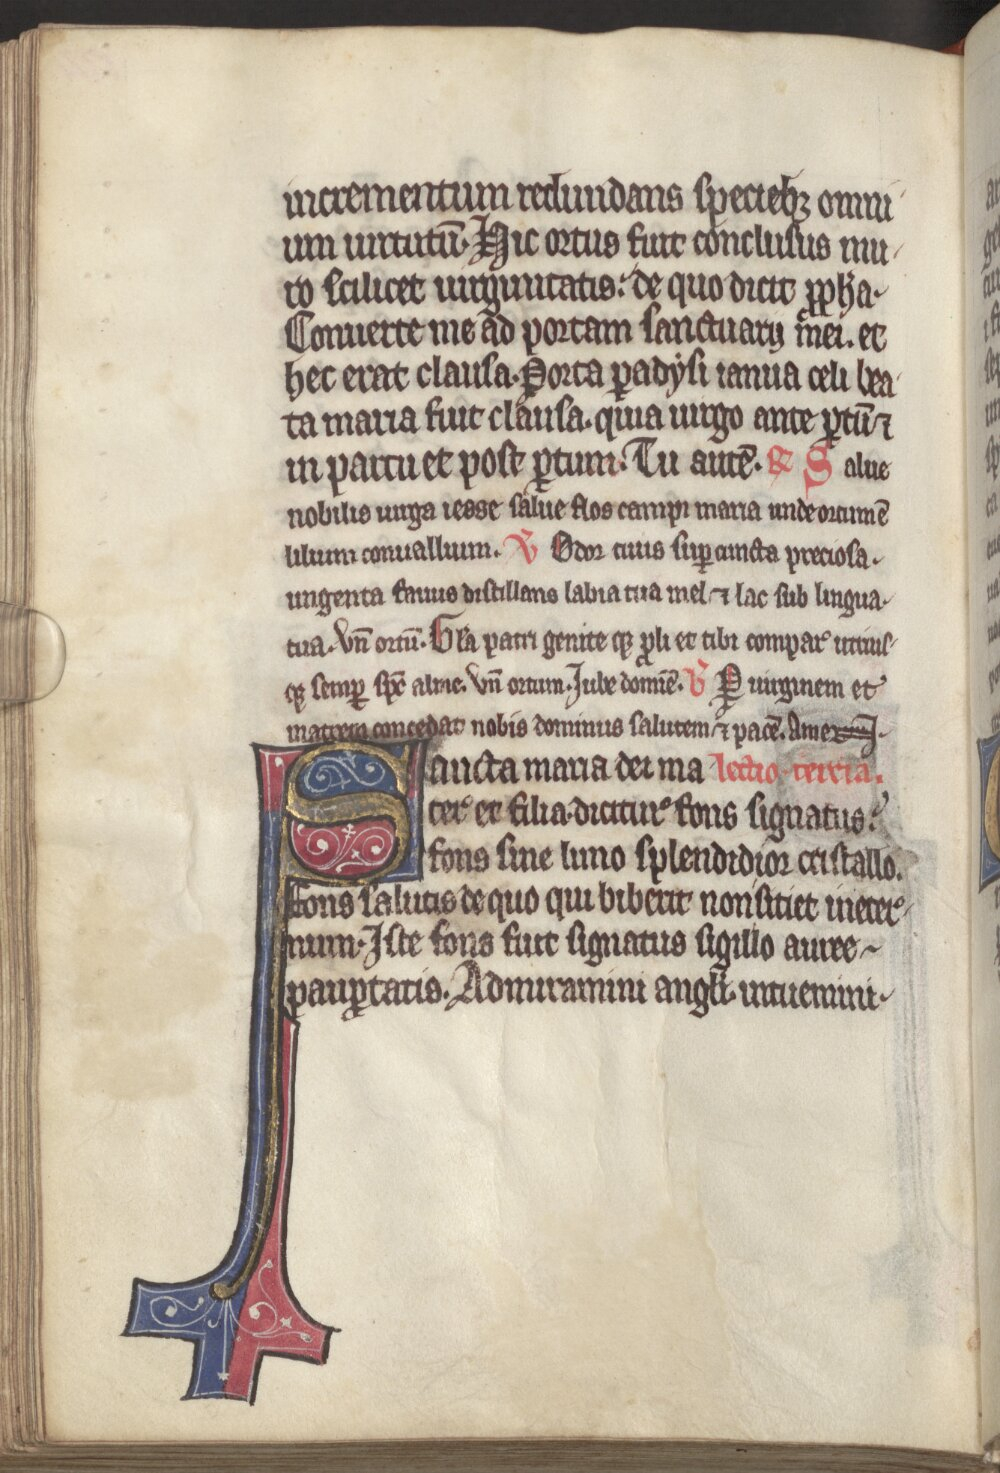 incrementum redundans specieb⁊ omni
um uirtutū. Hic ortus fuit conclusus mu
ro scilicet uirginitatis: de quo dicit ꝓph̄a.
Conuerte me ad portam sanctuarij mei. et
hec erat clausa. Porta ꝑadysi ianua celi bea
ta maria fuit clausa. quia uirgo ante ꝑtū ⁊
in partu et post ꝑtum. Tu autē. R Salue
nobilis uirga iesse salue flos campi maria unde ortum ē
lilium conuallium. V Odor tuus suꝑ cuncta preciosa
ungenta fauus distillans labia tua mel ⁊ lac sub lingua
tua. Vn̄ ortū. Gl̄a patri genite qꝫ ꝓli et tibi compar utrius
qꝫ semꝑ sp̄c alme. Vn̄ ortum. Jube domnē. V P uirginem et
matrem concedat nobis dominus salutem ⁊ pacē. Amen.
Sancta maria dei ma lectio tercia.
ter et filia dicitur fons signatus:
fons sine limo splendidior cristallo.
Fons salutis de quo qui biberit non sitiet in eter
num. Iste fons fuit signatus sigillo auree
pauꝑtatis. Admiramini angl̄i. intuemini